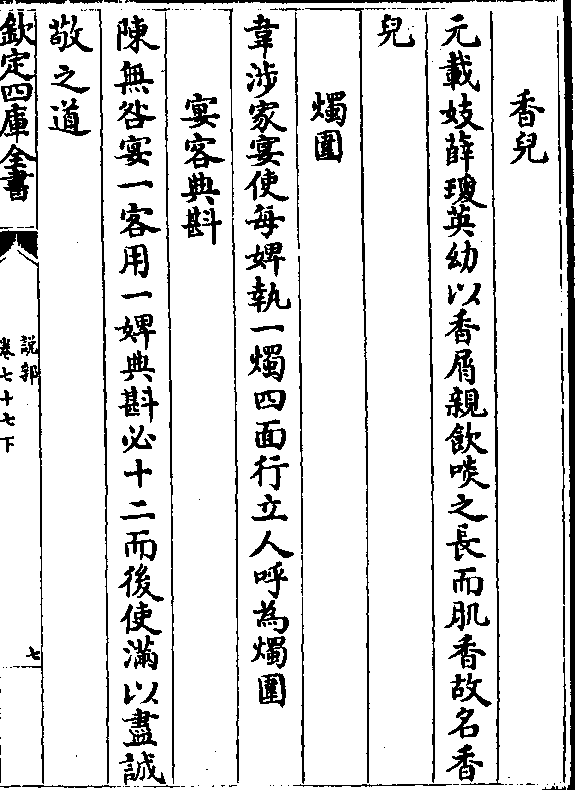 香兒
元載妓薛瓊英幼以香屑親飲啖之長而肌香故名香
兒
燭圍
韋涉家宴使每婢執一燭四面行立人呼為燭圍
宴客典斟
陳無咎宴一客用一婢典斟必十二而後使滿以盡誠
敬之道
欽定四庫全書
說郛
卷七十七下
七